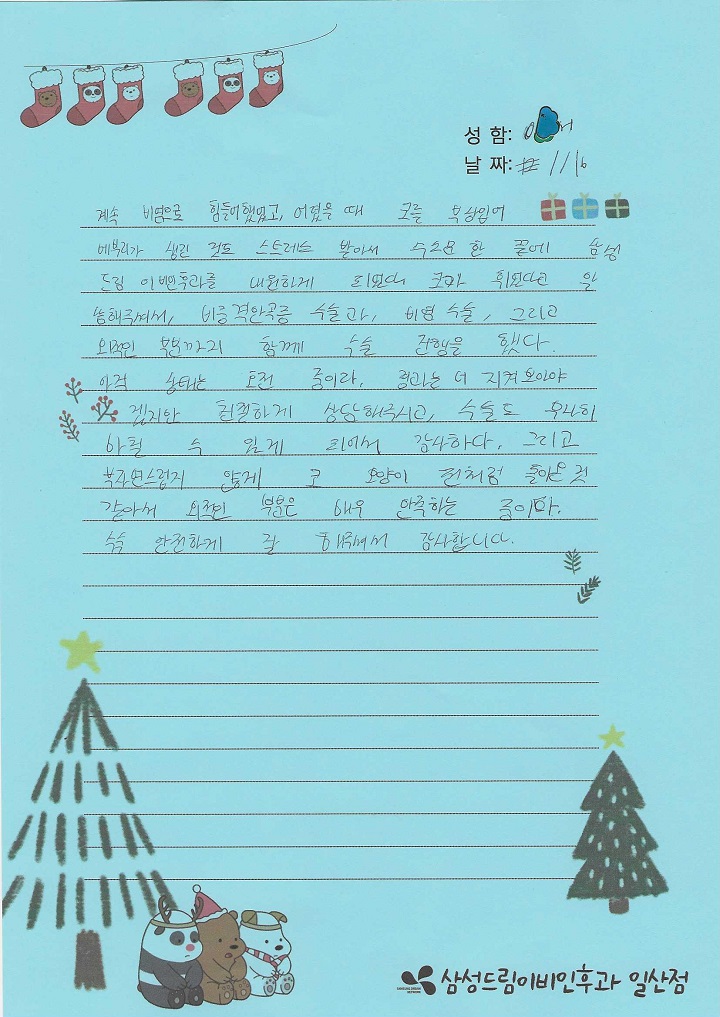 성 함:
날 짜: 11/16
계속 비염으로 힘들어했었고, 어렸을 때 코를 부상입어
메부리가 생긴 것도 스트레스 받아서 수소문 한 끝에 삼성
드림 이비인후과를 내원하게 되었다. 코가 휘었다고 말
씀해주셔서, 비중격만곡증 수술과, 비염 수술, 그리고
외적인 부분까지 함께 수술 진행을 했다.
아직 상태는 호전 중이라, 경과는 더 지켜보아야
겠지만 친절하게 상담해주시고, 수술도 무사히
마칠 수 있게 되어서 감사하다. 그리고
부자연스럽지 않게 코 모양이 전처럼 돌아온 것
같아서 외적인 부분은 매우 만족하는 중이다.
수술 안전하게 잘 해주셔서 감사합니다.
삼성드림이비인후과 일산점